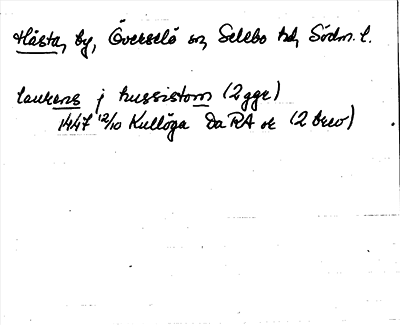 Håsta, by, Överselö sn, Selebo hd, Södm. l.
laurens j hussistom (2 ggr)
1447 12/10 Kullöga Da RA or (2 brev)